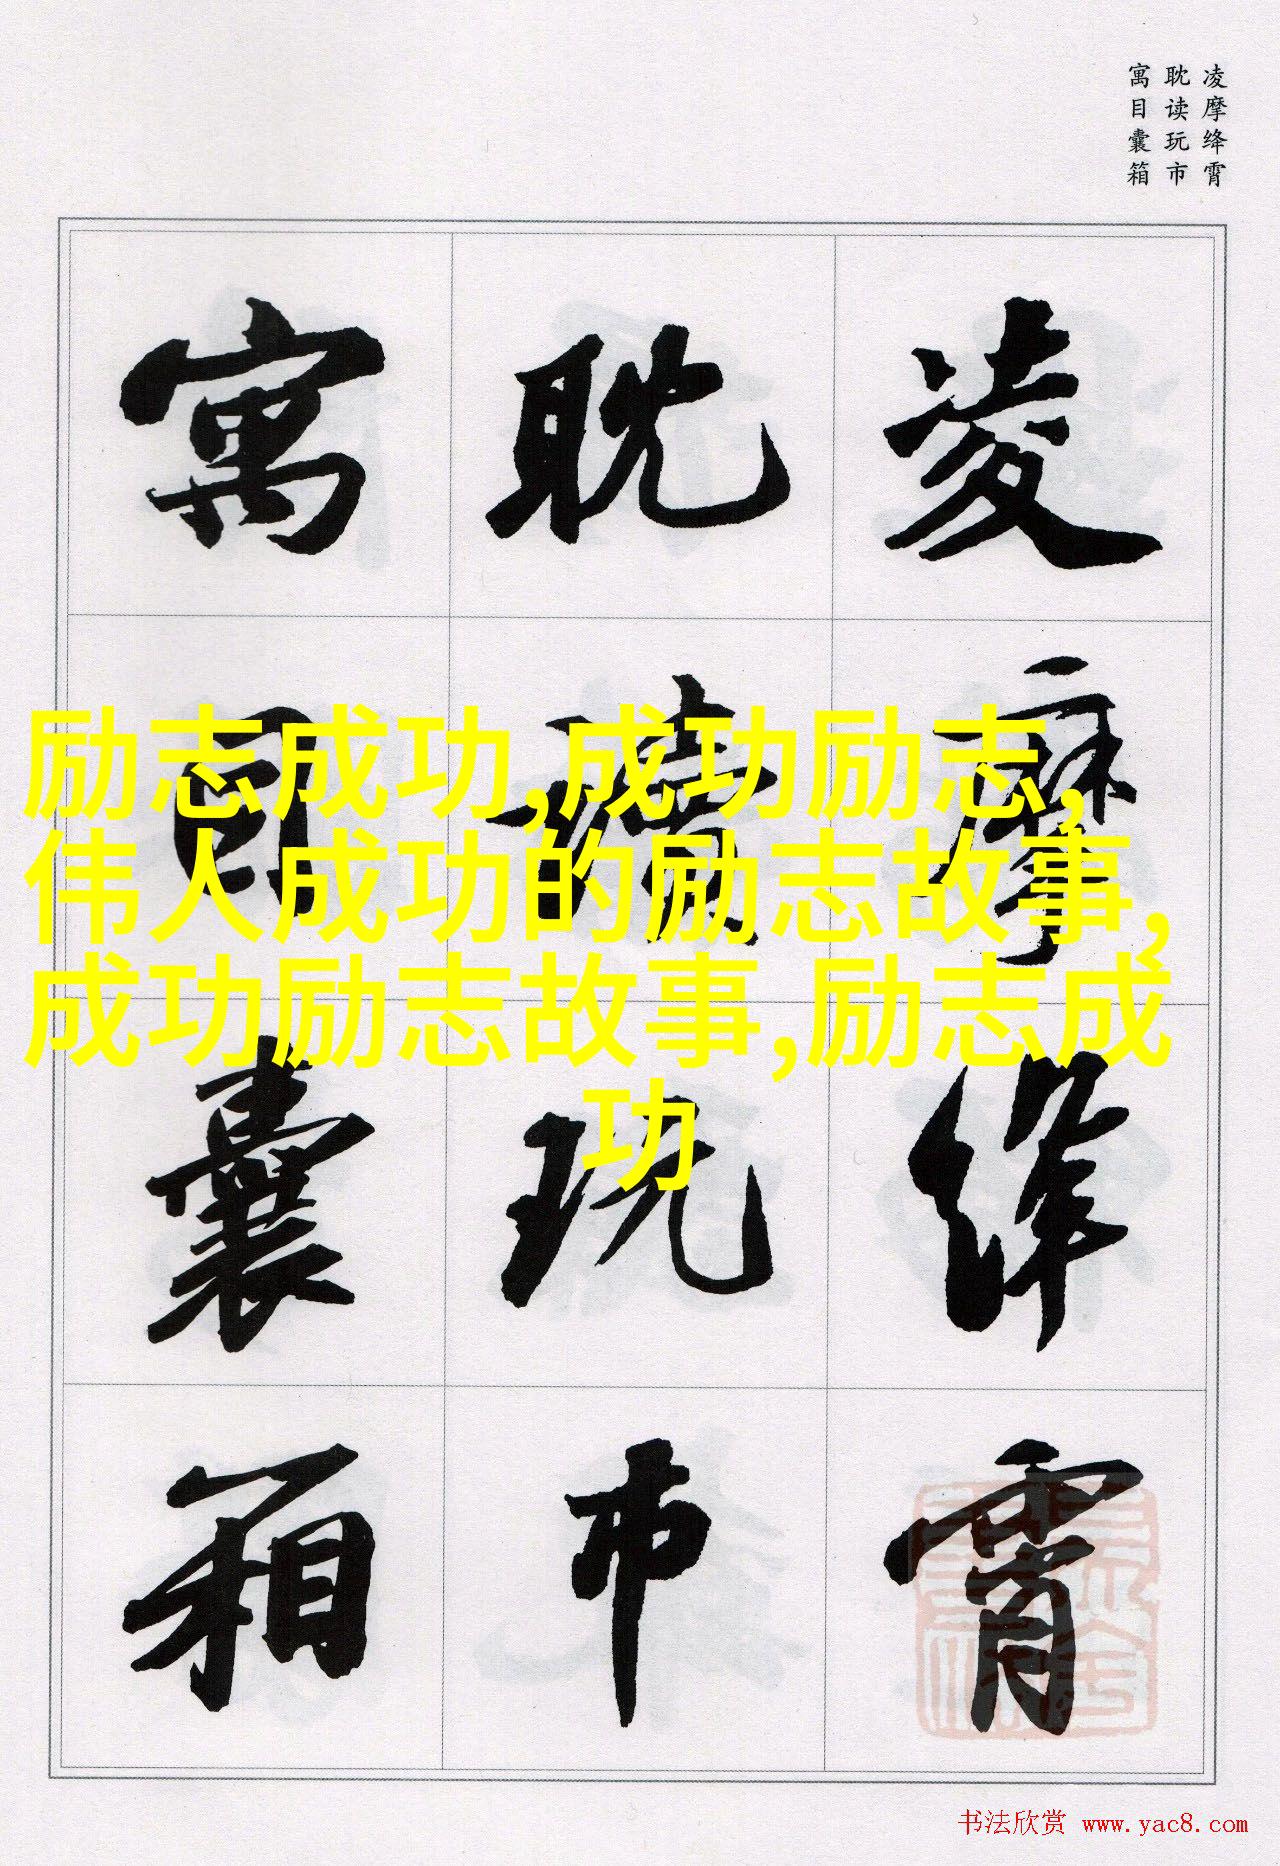 凌摩绛霄
耽读玩市
寓目囊箱
凌摩绛霄
耽讀玩市
寓目囊箱
励志成功,成功励志,
伟人成功的励志故事,
成功励志故事,励志成
功
书法欣赏 www.yac8.com